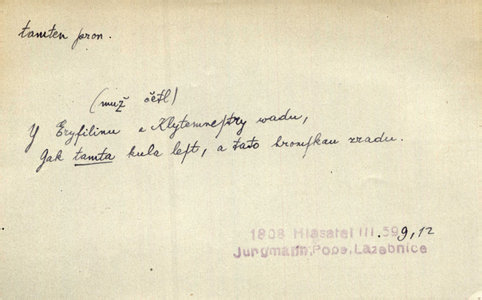 tamten pron.
(muž četl)
Y Eryfilinu a Klytemnestry wadu,
Gak tamta kula lest, a tato hromskau zradu.
1808 Hlasatel III. 599, 12
Jungmann, Pope, Lazebnice